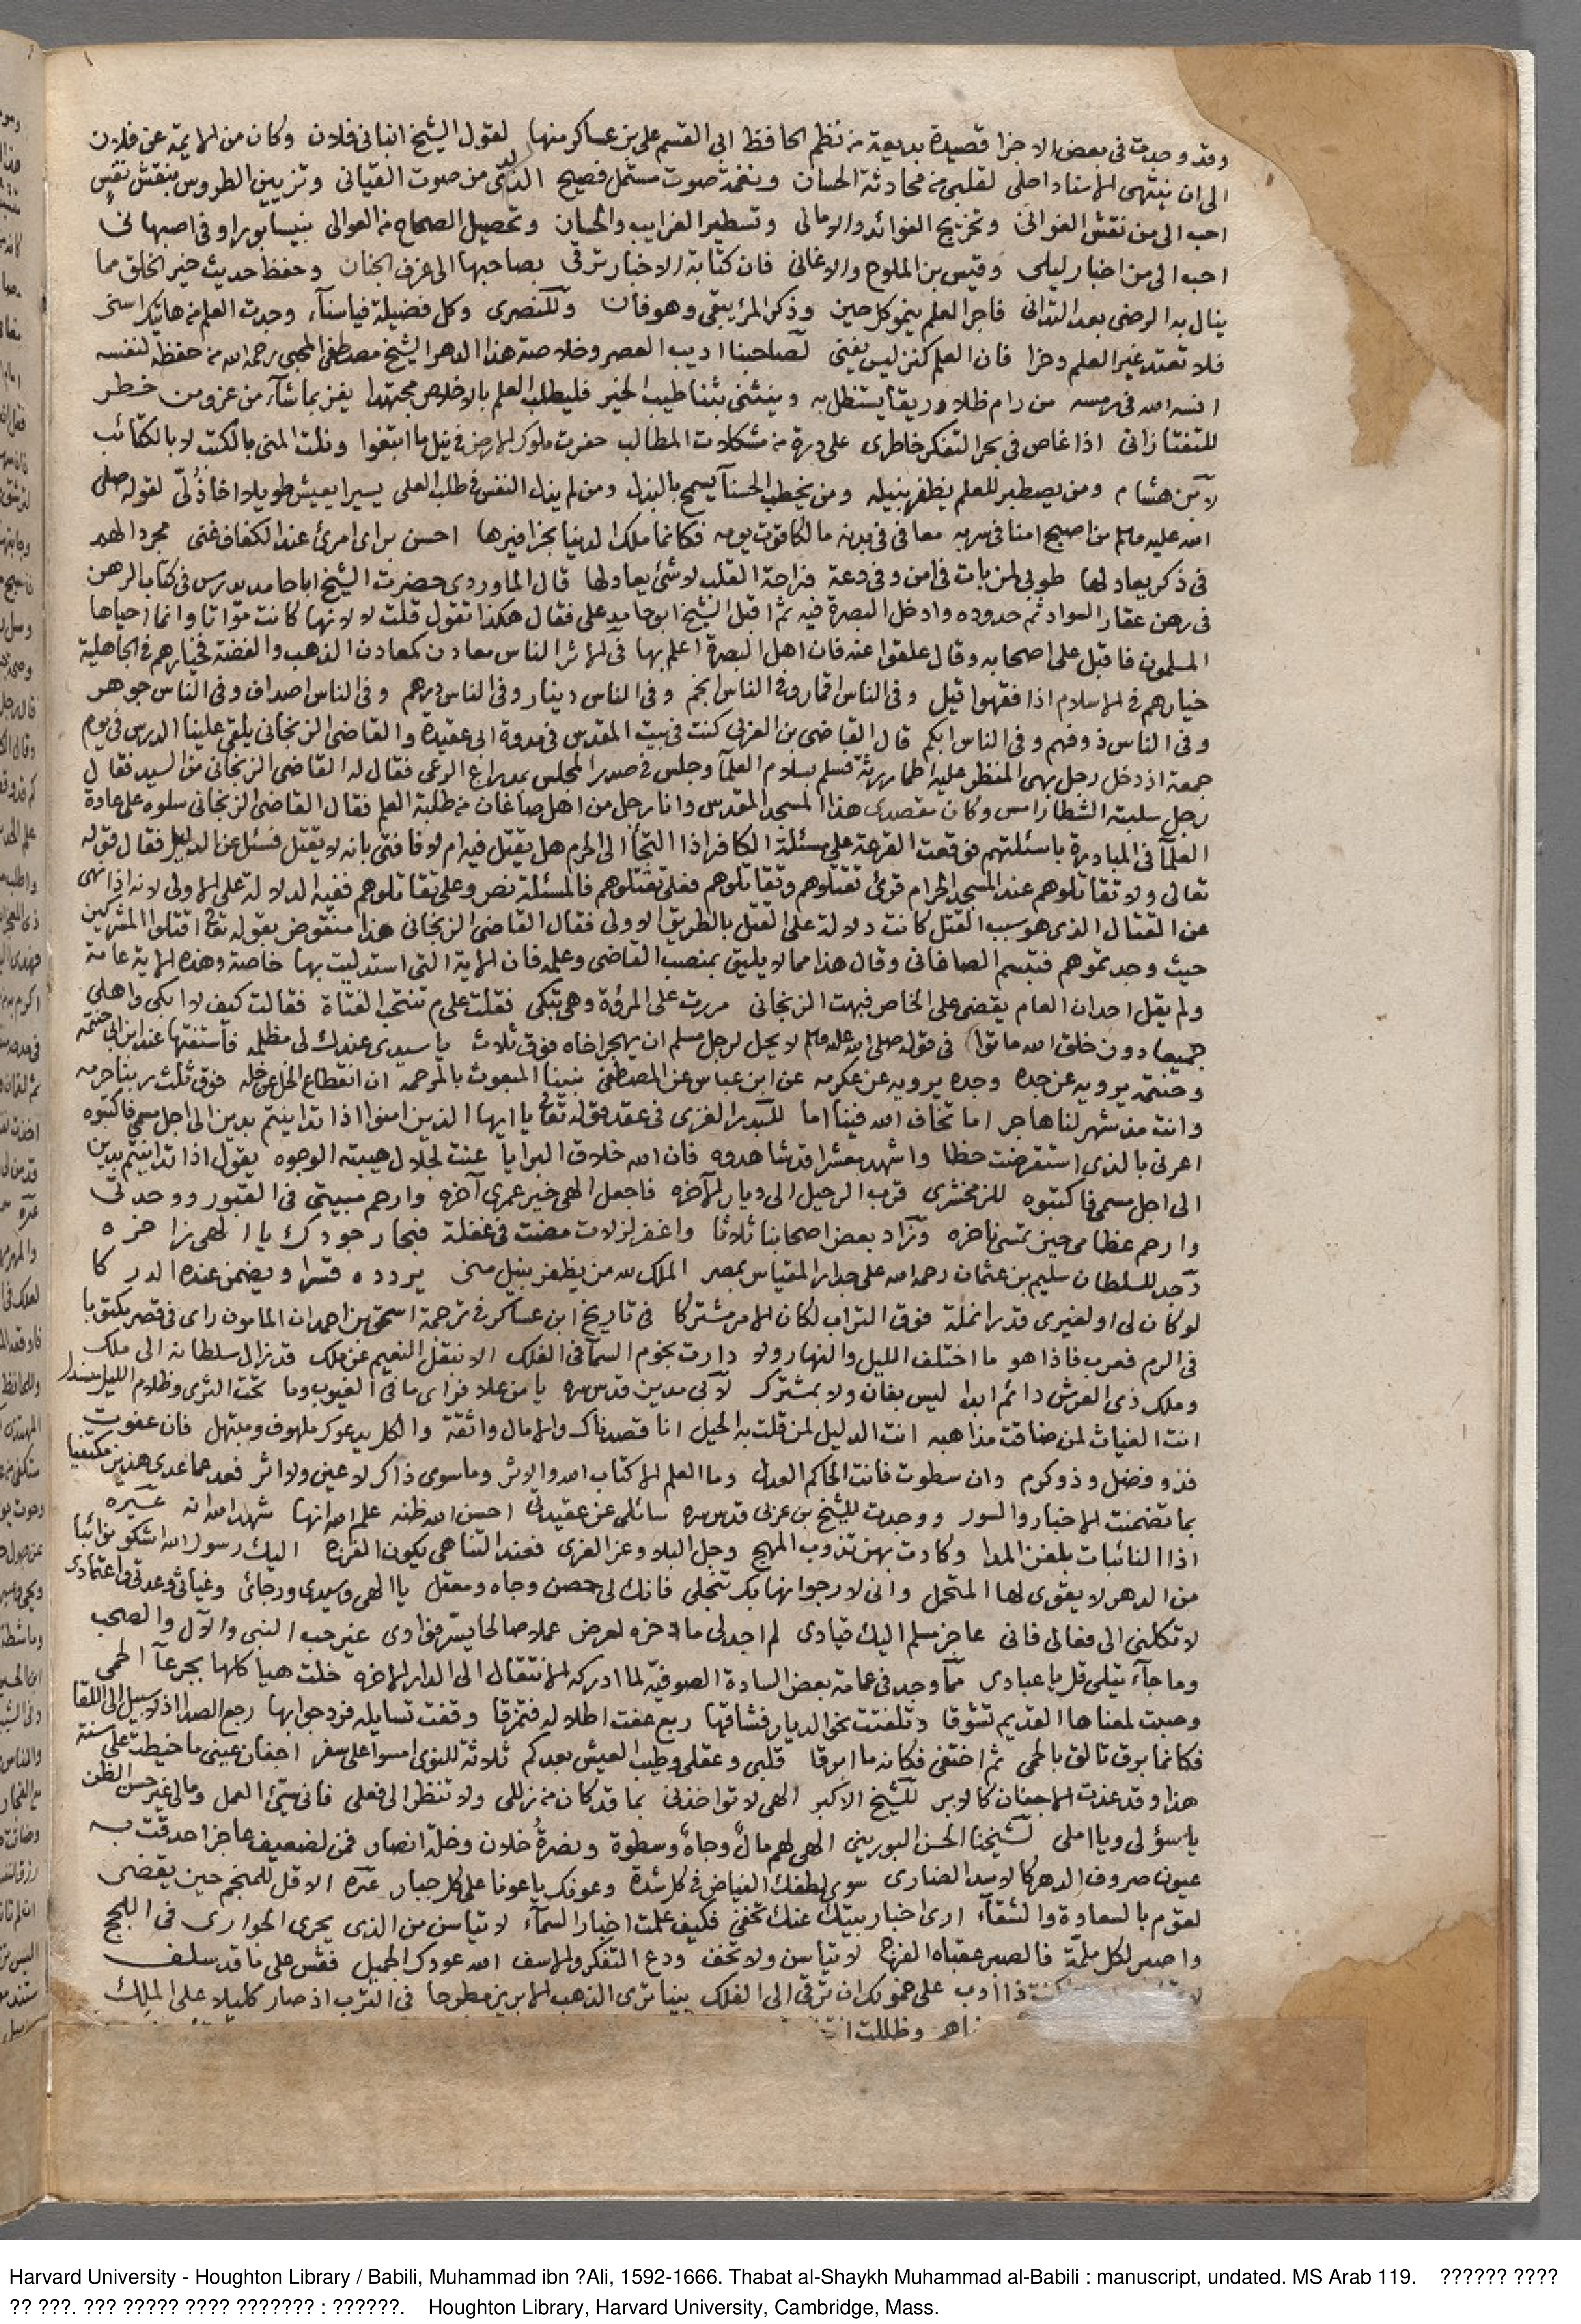 وقد وجدت في بعض الاجزا قصيدة بديعة من نظم الحافظ ابي القسم علي بن عساكر منها لقول الشيخ انباني فلان وكان من الايمة عن فلان
الى ان ينتهي الاسناد احلى لقلبي من محادثة الحسان ونغمة صوت مستمل فصيح الذ لدي من صوت القيان وتزيين الطروس بنقش نقس
احب الي من نقش الغواني وتخريج الفوائد والامالي وتسطير الغرايب والحسان وتحصيل الصحاح من العوالي بنيسابورا وفي اصبهان
احب الي من اخبار ليلى وقيس بن الملوح والاغاني فان كتابة الاخبار ترقى بصاحبها الى غرف الجنان وحفظ حديث خير الخلق مما
ينال به الرضى بعد التداني فاجر العلم ينمو كل حين وذكر المرء يبقى وهو فان وكل فضيلة فيها سناء وجدت العلم من هاتيك اسنى
فلا تعتد غير العلم ذخرا فان العلم كنز ليس يفنى لصاحبنا اديب العصر وخلاصة هذا الدهر الشيخ مصطفى المحبي رحمه الله من حفظه لنفسه
انسه الله في رمسه من رام ظلا وريقا يستظل به وينثني بثنا طيب الخير فليطلب العلم بالاخلاص مجتهدا يفز بما شاء من عز ومن خطر
للتفتازاني اذا غاص في بحر التفكر خاطري على درة من مشكلات المطالب حقرت ملوك الارض في نيل ما ابتغوا ونلت المنى بالكتب لا بالكتائب
لابن هشام ومن يصطبر للعلم يظفر بنيله ومن يخطب الحسناء يسمح بالبذل ومن لم يذل النفس في طلب العلى يسيرا يعيش طويلا اخا ذل لقوله صلى
الله عليه وسلم من اصبح امنا في سربه معافى في بدنه مالكا قوت يومه فكانما ملك الدنيا بحذافيرها احسن من اى امرئ عند الكفاف غنى مجرد الهم
في ذكر يعاد لها طوبى لمن بات في امن وفي دعة فراحة القلب لا شئ يعادلها قال الماوردي حضرت الشيخ ابا حامد يدرس في كتاب الرهن
في رهن عقار السواد ثم حدوده وادخل البصرة فيه ثم اقبل الشيخ ابو حامد علي فقال هكذا تقول قلت لا لانها كانت مواتا وانما احياها
المسلمون فاقبل على اصحابه وقال علقوا عنه فان اهل البصرة اعلم بها في الاثر الناس معادن كمعادن الذهب والفضة فخيارهم في الجاهلية
خيارهم في الاسلام اذا فقهوا قيل وفي الناس اقمار وفي الناس انجم وفي الناس دينار وفي الناس درهم وفي الناس اصداف وفي الناس جوهر
وفي الناس ذو فهم وفي الناس ابكم قال القاضي بن العربي كنت في بيت المقدس في مدرسة ابي عقبة والقاضي الزنجاني يلقي علينا الدرس في يوم
جمعة اذ دخل رجل بهي المنظر عليه اطمار رثة فسلم بسلام العلماء وجلس في صدر المجلس بمدراع الرعي فقال له القاضي الزنجاني من السيد فقال
رجل سلبته الشطار امس وكان مقصدي هذا المسجد المقدس وانا رجل من اهل صاغان من طلبة العلم فقال القاضي الزنجاني سلوه على عادة
العلماء في المبادرة باسئلتهم فوقعت القرعة على مسئلة الكافر اذا التجأ الى الحرم هل يقتل فيه ام لا فافتى بانه لا يقتل فسئل عن الدليل فقال قوله
تعالى ولا تقاتلوهم عند المسجد الحرام قرئ تقتلوهم وتقاتلوهم فعلى تقتلوهم فالمسئلة نص وعلى تقاتلوهم ففيه الدلالة على الاولى لانه اذا نهى
عن القتال الذي هو سبب القتل كانت دلالة على القتل بالطريق الاولى فقال القاضي الزنجاني هذا منقوض بقوله تع اقتلوا المشركين
حيث وجدتموهم فتبسم الصاغاني وقال هذا مما لا يليق بمنصب القاضي وعلمه فان الاية التي استدليت بها خاصة وهذه الاية عامة
ولم يقل احد ان العام يقضي على الخاص فبهت الزنجاني مررت على المروة وهي تبكي فقلت علام تنتحب الفتاة فقالت كيف لا ابكي واهلي
جميعا دون خلق الله ماتوا في قوله صلى الله عليه وسلم لا يحل لرجل مسلم ان يهجر اخاه فوق ثلاث يا سيدي عندك لي مظلمه فاستفت فيها ابن ابي خيثمه
وخيثمه يرويه عن جده وجده يرويه عن عكرمه عن ابن عباس عن المصطفى نبينا المبعوث بالمرحمه ان انقطاع الخل عن خله فوق ثلث ربنا حرمه
وانت مذ شهر لنا هاجر اما تخاف الله فينا اما للبدر الغزي في عقد قوله تعالى يا ايها الذين امنوا اذا تداينتم بدين الى اجل مسمى فاكتبوه
اعرني بالذي استقرضت خطا واشهد معشرا قد شاهدوه فان الله خلاق البرايا عنت لجلال هيبته الوجوه يقول اذا تداينتم بدين
الى اجل مسمى فاكتبوه للزمخشري قرب الرحيل الى ديار الاخره فاجعل الهي خير عمري آخره وارحم مبيتي في القبور ووحدتي
وارحم عظامي حين تمسي ناخره وزاد بعض اصحابنا ثلاثا واغفر لزلات مضت في غفلة فبحار جودك يا الهي زاخره
وجد للسلطان سليم بن عثمان رحمه الله على جدار المقياس بمصر الملك لله من يظفر بنيل منى يردده قسرا ويضمن عنده الدركا
لو كان لي او لغيري قدر انملة فوق التراب لكان الامر مشتركا في تاريخ ابن عساكر في ترجمة اسحق بن احمد ان المامون راى في قصر مكتوبا
في الرم فعرب فاذا هو ما اختلف الليل والنهار ولا دارت نجوم السماء في الفلك الا لنقل النعيم عن ملك قد زال سلطانه الى ملك
وملك ذي العرش دائم ابدا ليس بفان ولا بمشترك لابي مدين قدس سره يا من علا فراى ما في الغيوب وما تحت الثرى وظلام الليل منسدل
انت الغياث لمن ضاقت مذاهبه انت الدليل لمن قلت به الحيل انا قصدناك والامال واثقة والكل يدعوك ملهوف ومبتهل فان عفوت
فذو فضل وذو كرم وان سطوت فانت الحاكم العدل وما العلم الا كتاب الله والاثر وما سوى ذاك لا عين ولا اثر فعد عما عدى هذين مكتفيا
بما تضمنت الاخبار والسور ووجدت للشيخ بن عربي قدس سره سائلي عن عقيدتي احسن الله ظنه علم الله انها شهد الله انه غيره
اذا النائبات بلغن المدا وكادت بهن تذوب المهج وجل البلا وعز العزى فعند التناهي يكون الفرج اليك رسول الله اشكو نوائبا
من الدهر لا يقوى لها المتحمل واني لارجو انها بك تنجلي فانك لي حصن وجاه ومعقل يا الهي وسيدي ورجائي وغياثي وعدتي واعتمادي
لا تكلني الى فعالي فاني عاجز مسلم اليك قيادي لم اجد لي ما ادخره لعرض عملا صالحا يسر فؤادي غير حب النبي والآل والصحب
وما جاء يتلى قل يا عبادي مما وجد في عمامة بعض السادة الصوفية لما ادركه الانتقال الى الدار الاخره خلت هيا كلها بجرعاء الحمى
وصبت لمعناها القديم تشوقا وتلفتت نحو الديار فشاقها ربع عفت اطلاله فتمزقا وقفت تسايله فرد جوابها رجع الصدا اذ لا سبيل الى اللقا
فكانما برق تالق بالحمى ثم اختفى فكانه ما ابرقا قلبي وعقلي وطيب العيش بعدكم ثلاثة للنوى امسوا على سفر اجفان عيني ما خيطت على سنة
هذا وقد غذت الاجفان كالابر للشيخ الاكبر الهي لا تواخذني بما قد كان من زللي ولا تنظر الى فعلي فاني سيئ العمل وما لي غير حسن الظن
يا سؤلي ويا املي لشيخنا الحسن البوريني الهي لهم مال وجاه وسطوة ونصرة خلان وخلة انصار فمن لضعيف عاجز احدقت به
عيون صروف الدهر كالاسد الضاري سوى لطفك الفياض في كل شدة وعونك يا عونا على كل جبار غيره الا قل للمنجم حين يقضي
لقوم بالسعادة والشقاء ارى اخبار بيتك عنك تخفى فكيف علمت اخبار السماء لا تياسن من الذي يجري الجواري في اللجج
واصبر لكل ملمة فالصبر عقباه الفرج لا تياسن ولا تخف ودع التفكر والاسف الله عودك الجميل فقس على ما قد سلف
كنت ذا ادب على خمولك ان ترقى الى الفلك بينا ترى الذهب الابريز مطرحا في الترب اذ صار كليلا على الملك
وظللت